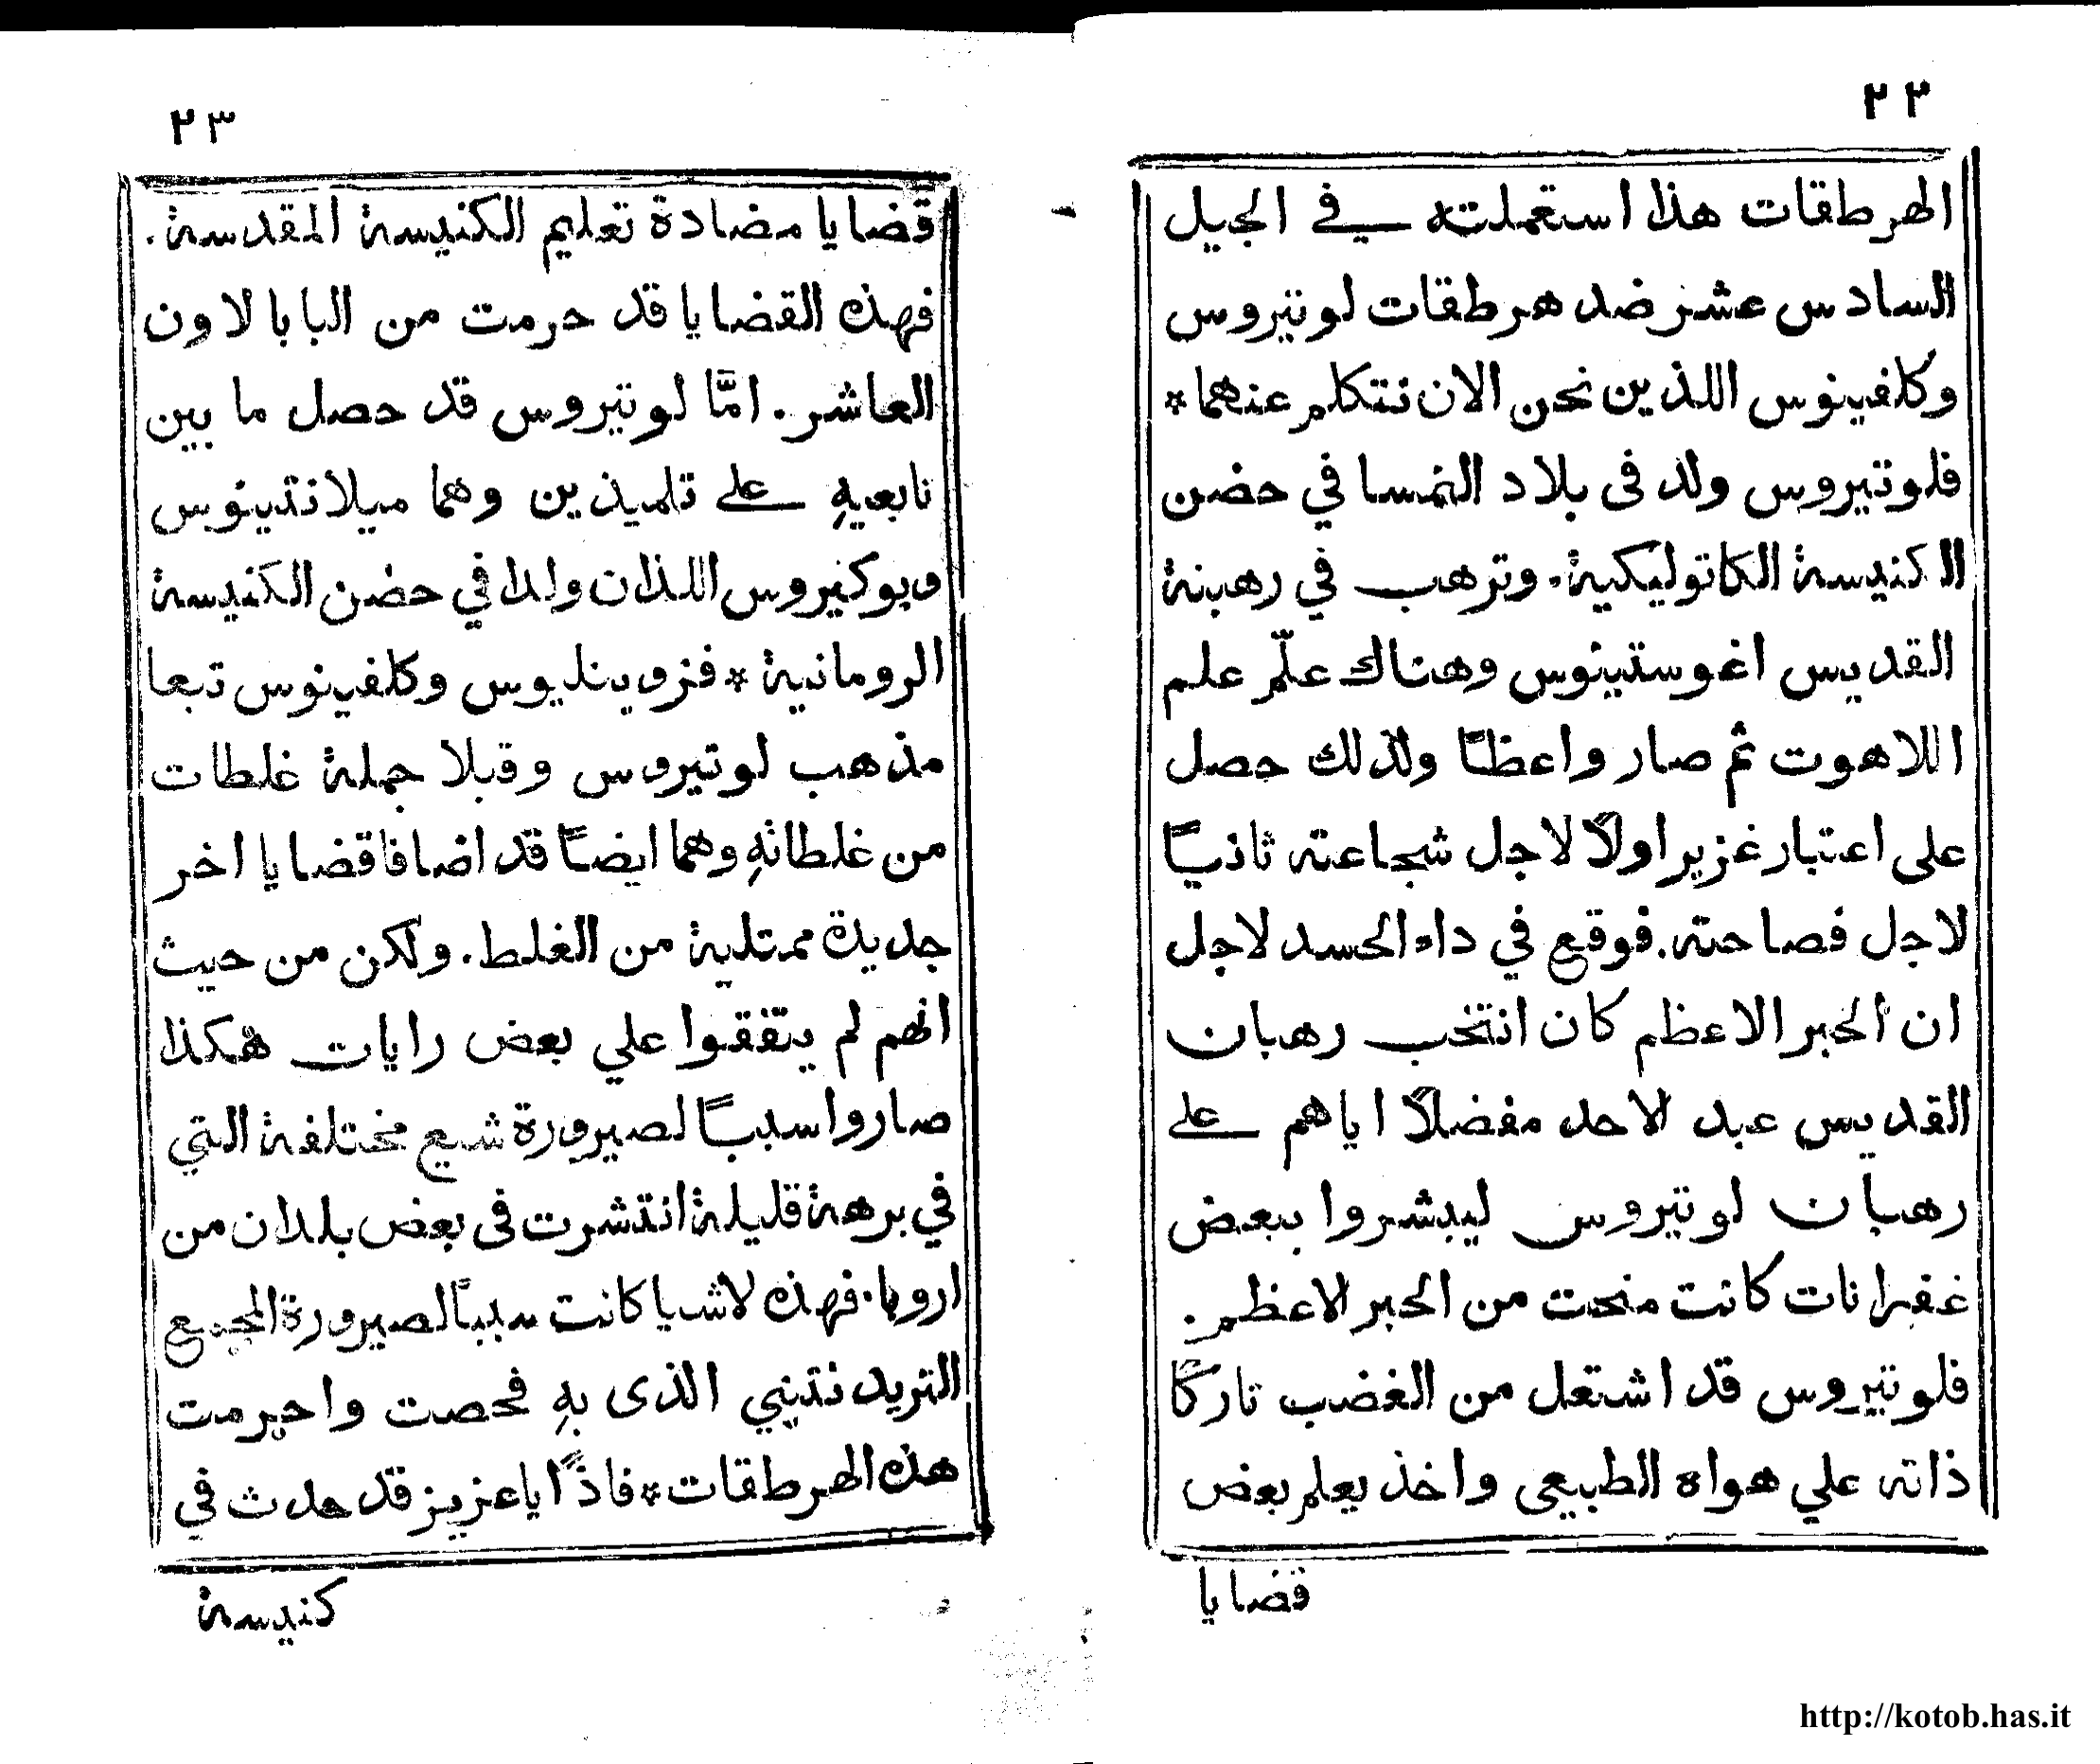 ٢٢
الهرطقات هذا استعملته في الجيل
السادس عشر ضد هرطقات لوتيروس
وكلفينوس اللذين نحن الان نتكلم عنهما *
فلوتيروس ولد فى بلاد النمسا في حضن
الكنيسة الكاتوليكية. وترهب في رهبنة
القديس اغوستينوس وهناك علّم علم
اللاهوت ثم صار واعظًا ولذلك حصل
على اعتبار غزير اولاً لاجل شجاعته ثانيًا
لاجل فصاحته. فوقع في داء الحسد لاجل
ان الحبر الاعظم كان انتخب رهبان
القديس عبد الاحد مفضلاً اياهم على
رهبان لوتيروس ليبشروا ببعض
غفرانات كانت منحت من الحبر الاعظم.
فلوتيروس قد اشتعل من الغضب تاركًا
ذاته علي هواه الطبيعى واخذ يعلم بعض
قضايا
٢٣
قضايا مضادة تعليم الكنيسة المقدسة.
فهذه القضايا قد حرمت من البابا لاون
العاشر. امّا لوتيروس قد حصل ما بين
تابعيهِ على تلميذين وهما ميلانتينوس
وبوكنيروس اللذان ولدا في حضن الكنيسة
الرومانية * فزوينليوس وكلفينوس تبعا
مذهب لوتيروس وقبلا جملة غلطات
من غلطاتهِ وهما ايضًا قد اضافا قضايا اخر
جديدة ممتلية من الغلط. ولكن من حيث
انهم لم يتفقوا علي بعض رايات هكذا
صاروا سببًا لصيرورة شيع مختلفة التي
في برهة قليلة انتشرت فى بعض بلدان من
اروبا. فهذه لاشيا كانت سببًا لصيرورة المجمع
التريدنتيني الذى بهِ فحصت واحرمت
هذه الهرطقات * فاذًا يا عزيز قد حدث في
كنيسة
http://kotob.has.it